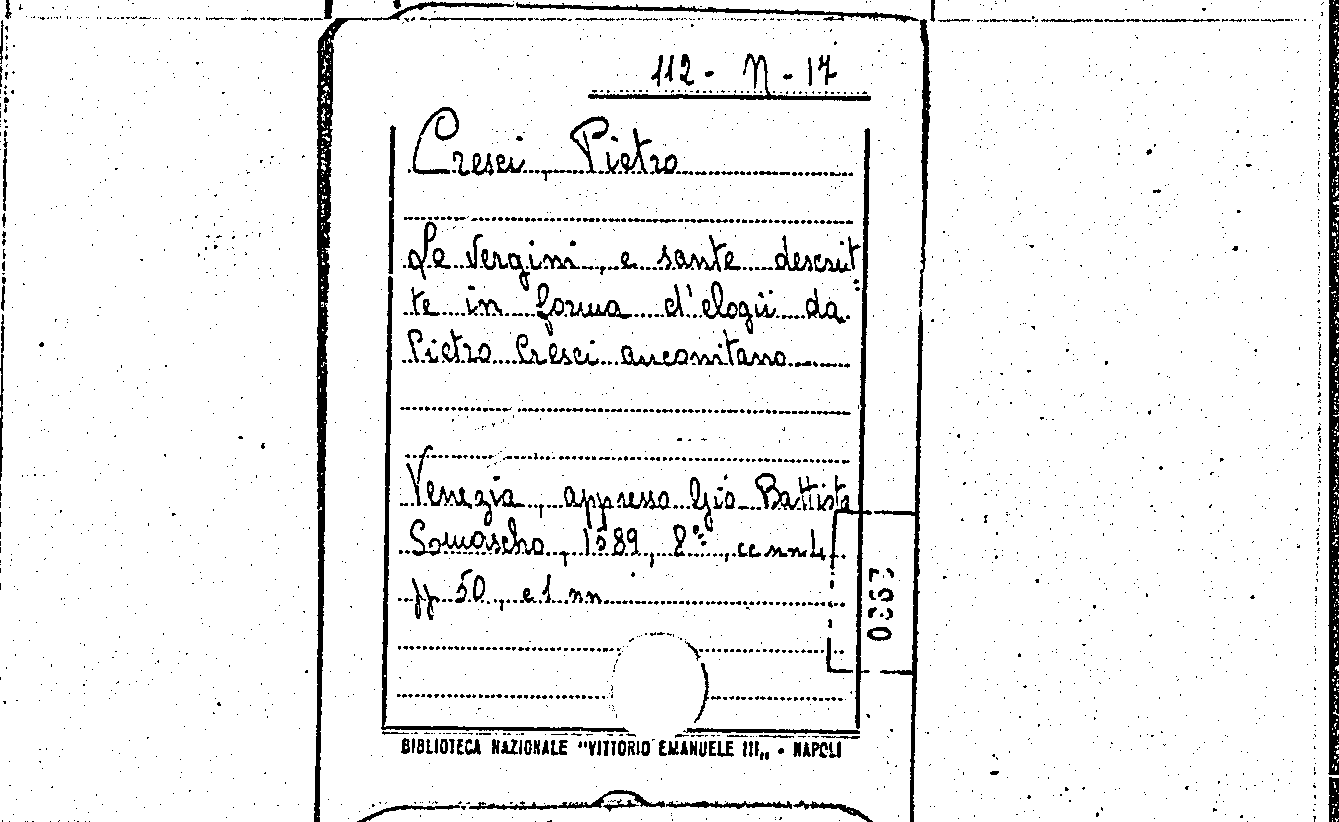 112 - N - 17
Cresci, Pietro
Le Vergini, e sante descrit
te in forma d'elogii da
Pietro Cresci anconitano
Venezia, appresso Gio Battista
Somascho, 1589, 8°, cc nn 4
pp 50, e 1 nn
BIBLIOTECA NAZIONALE "VITTORIO EMANUELE III„ - NAPOLI